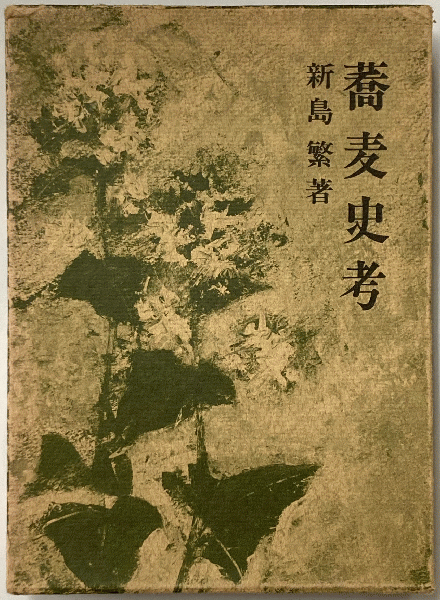 蕎麦史考
新島繁著